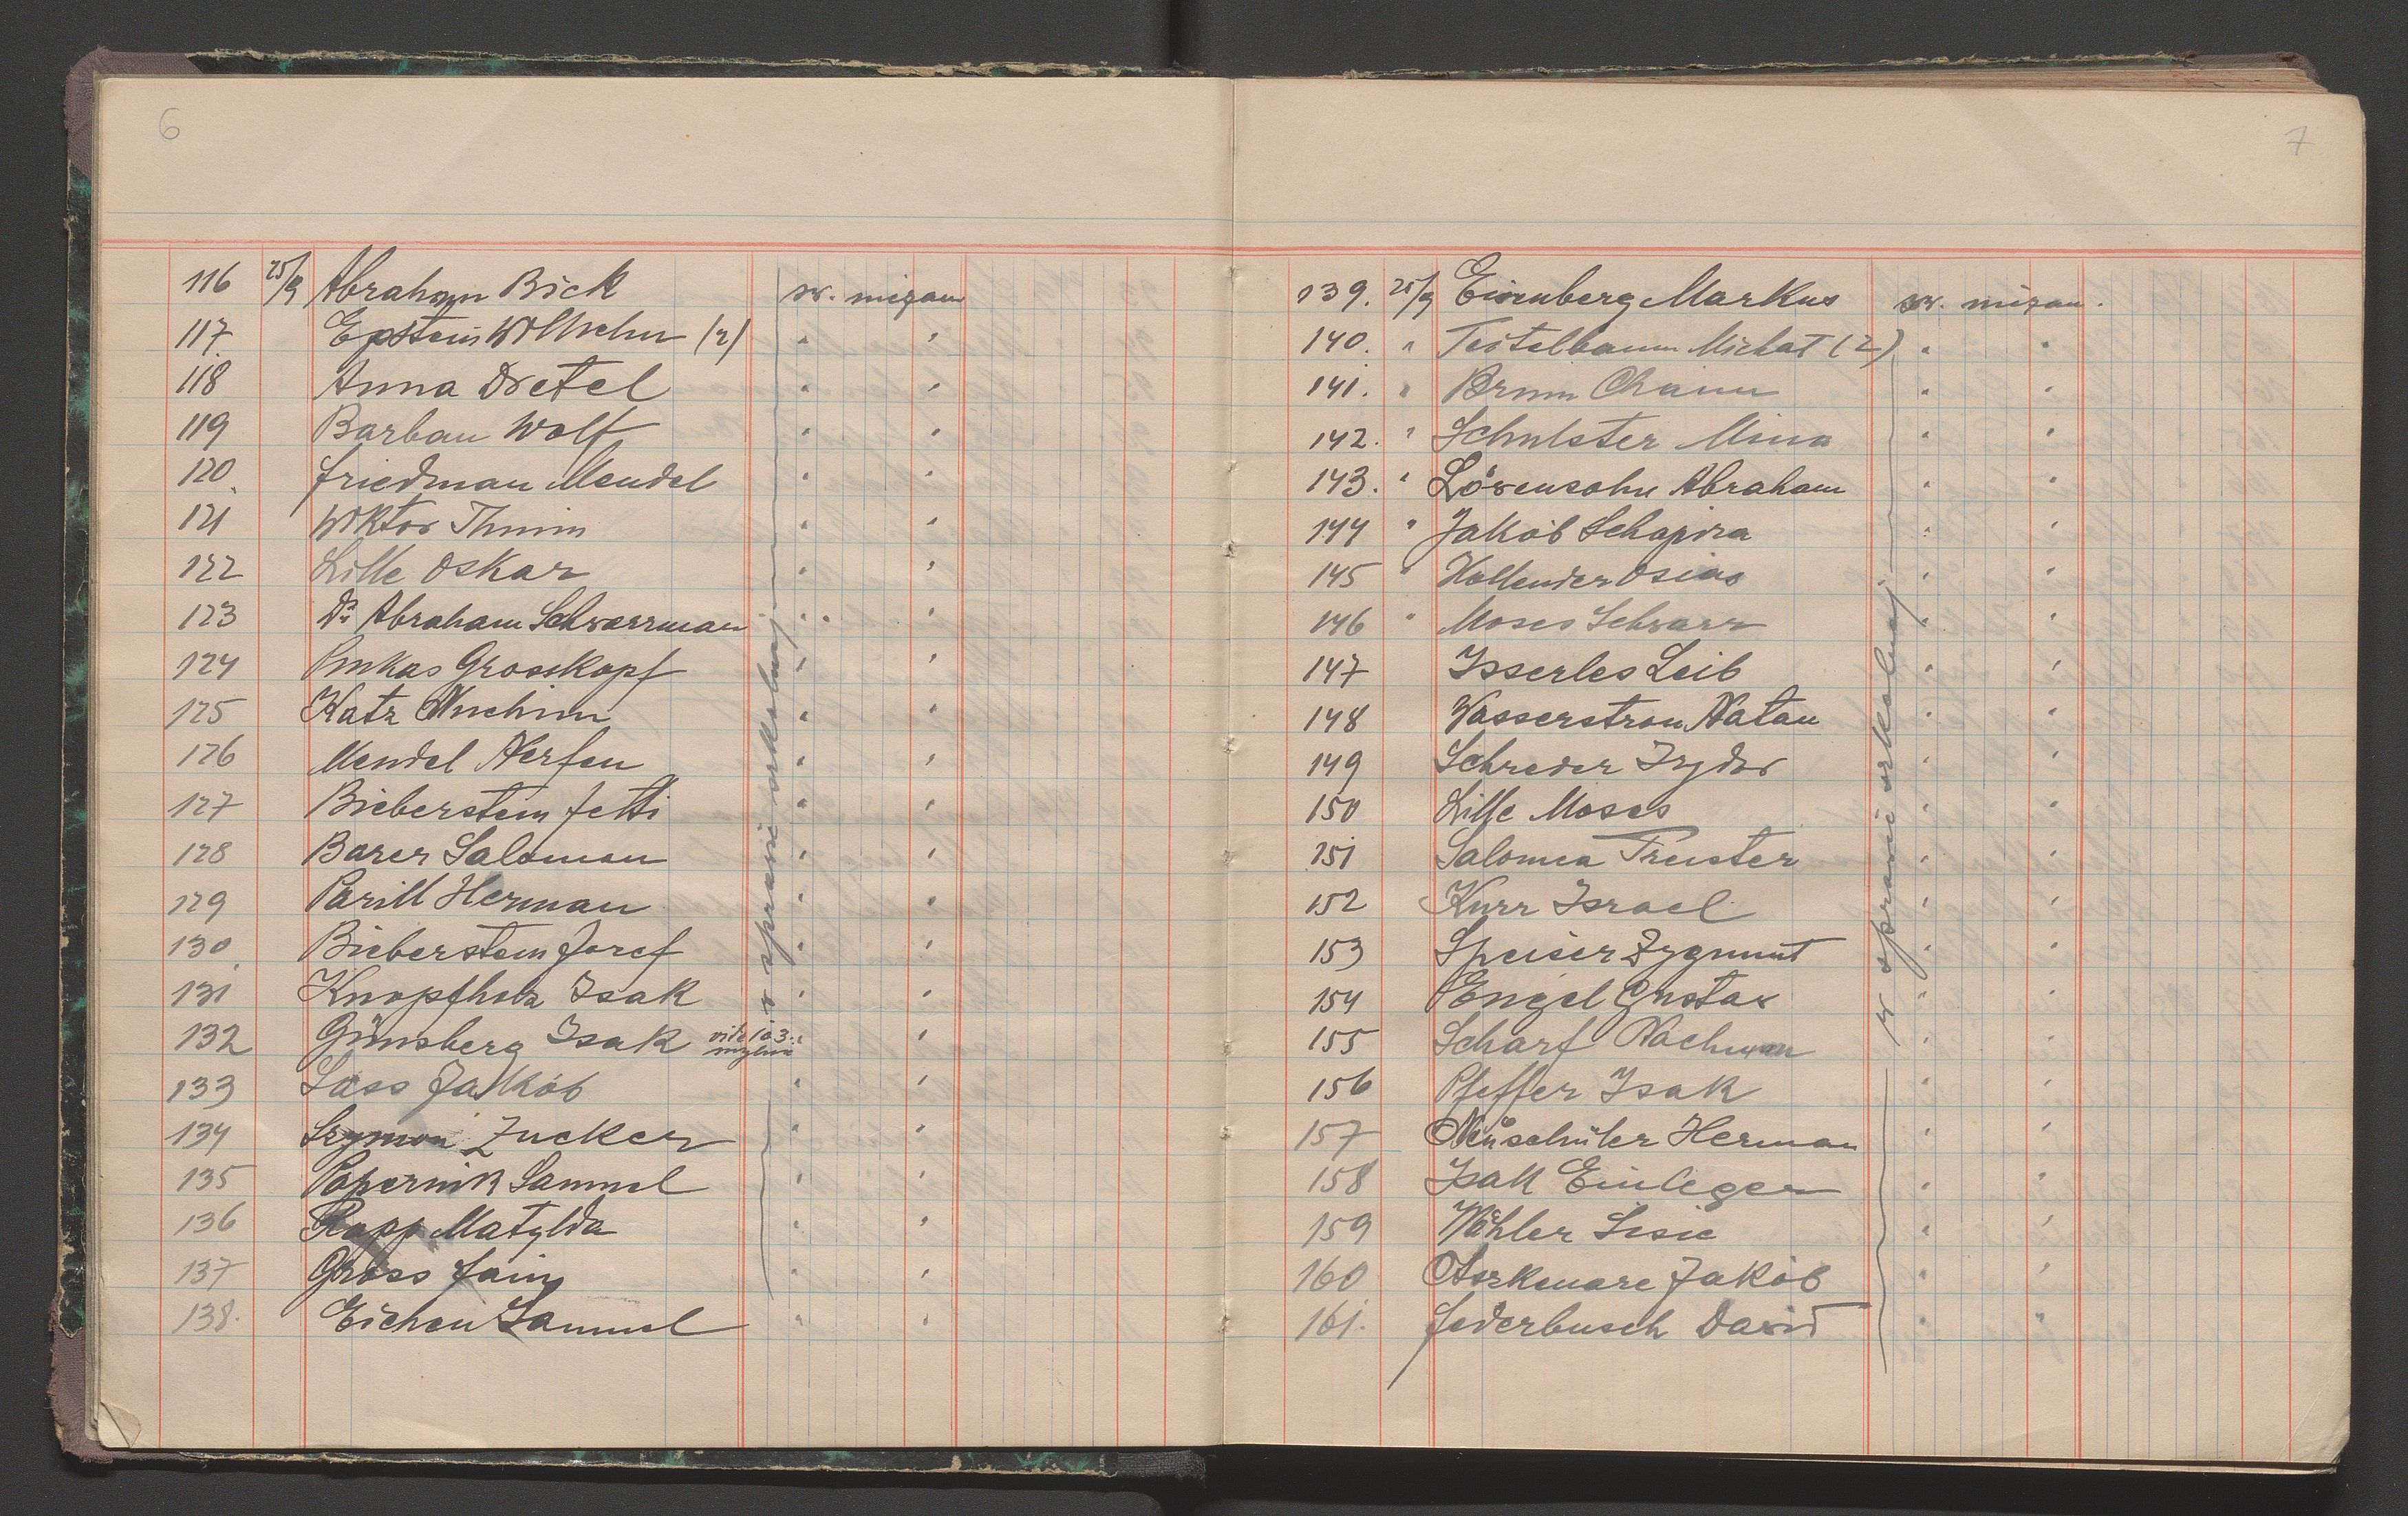 6
116 25/9 Abraham Bick
117. Epstein Wilhelm (2)
118 Anna Dretel
119 Barban Wolf
120. Friedman Mendel
121 Wiktor Thumin
122 Lille Oskar
123 Dr Abraham Schwarzman
124 Pinkas Grosskopf
125 Katz Nuchim
126 Mendel Nerfen
127 Bieberstein Jetti
128 Barer Salomon
129 Parill Herman
130. Bieberstein Josef
131 Knopfholz Isak
132 Günsberg Isak
133 Lass Jakób
134 Szymon Zucker
135 Papernik Samuel
136 Rapp Matylda
137 Gross
138. Eichen Samuel
w sprawie szkolnej
7
139. 25/9 Eisenberg Markus
140. " Teitelbaum Michał (2)
141. " Brum Chaim
142. " Schulster Mina
143. " Löwensohn Abraham
144 " Jakób Schapira
145 " Hollender Osias
146 " Moses Schwarz
147 Isserles Leib
148 Wasserstrom Natan
149 Schreder Izydor
150 Lille Moses
151 Salomea Treister
152 Kurz Israel
153 Speiser Zygmunt
154 Engel Gustav
155 Scharf Nachman
156 Pfeffer Isak
157 Neuschüler Herman
158 Isak Einleger
159 Wöhler Lisie
160 Jakób
161. Federbusch Dawid
w sprawie szkolnej